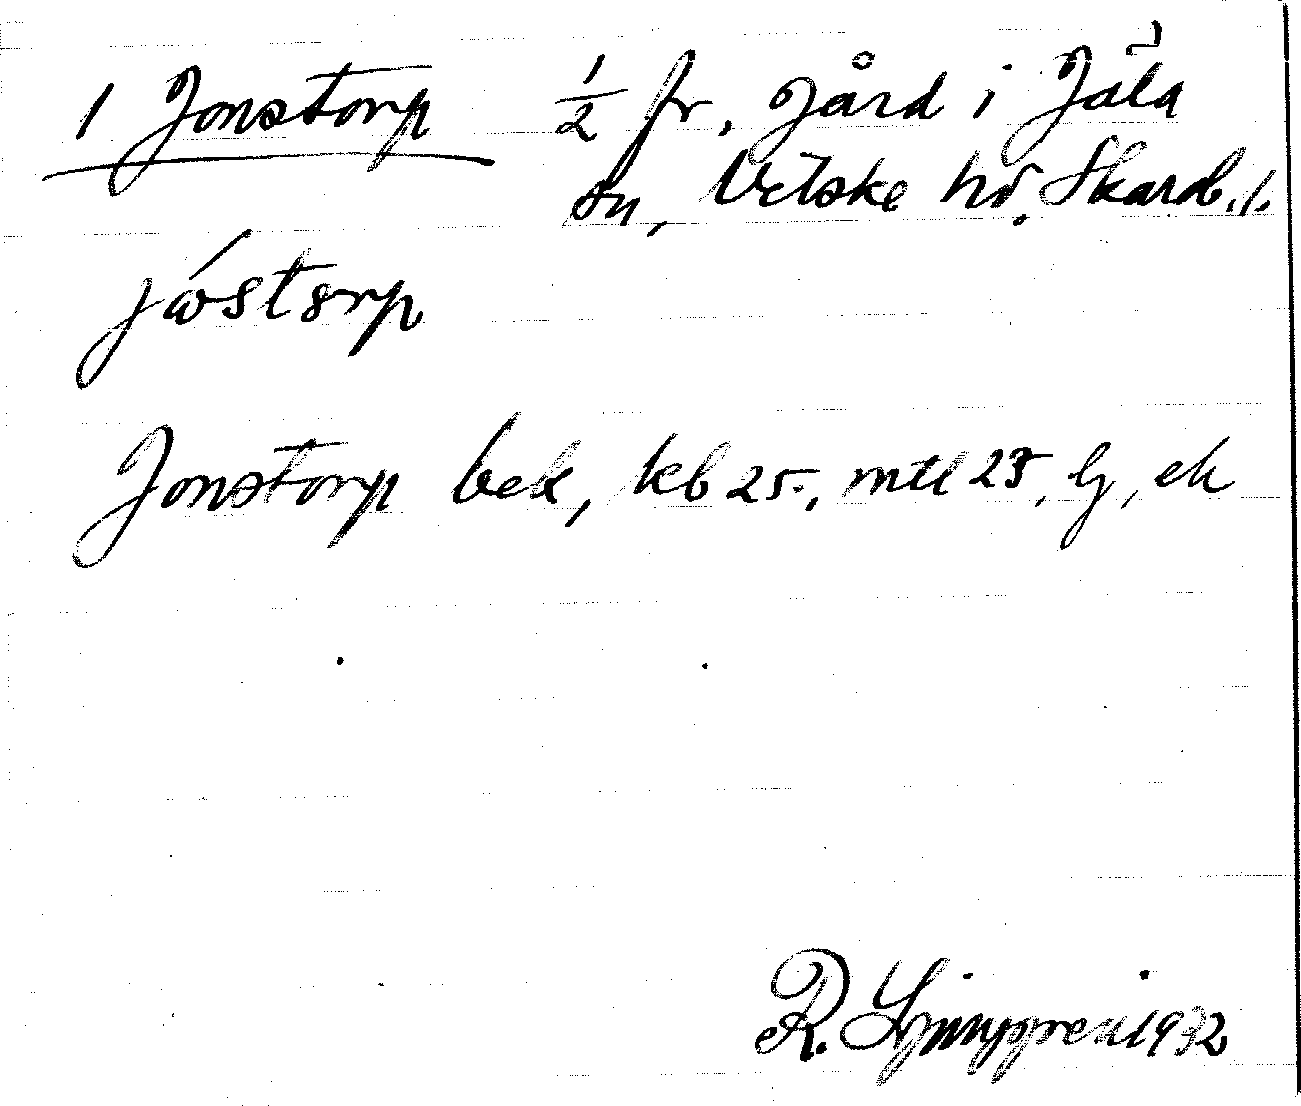 1 Jonstorp ½ fr. gård i Jäla
sn, Vilske hd. Skarab. l.
jóstorp
Jonstorp bek, kb 25, mtl 25, lj, ek
R. Ljunggren 1932